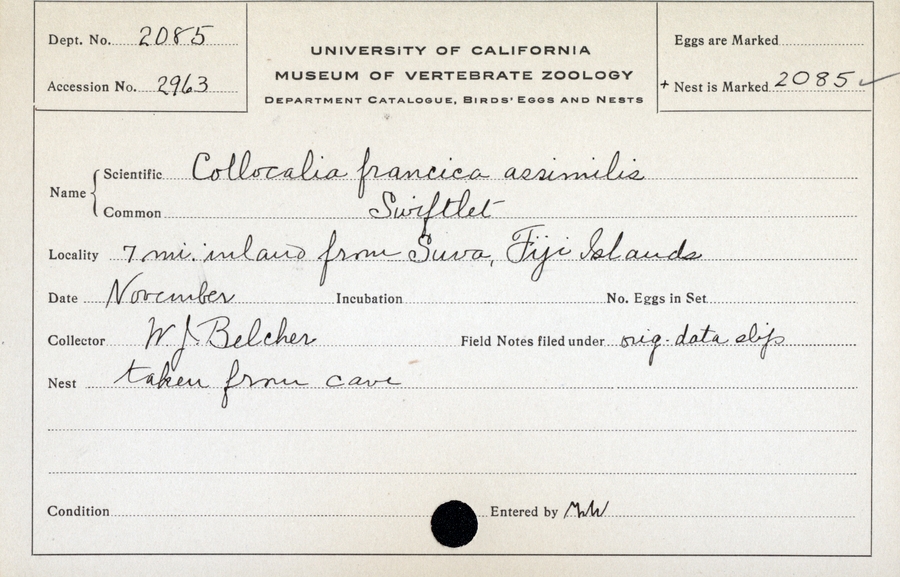 Dept. No. 2085
Accession No. 2963
UNIVERSITY OF CALIFORNIA
MUSEUM OF VERTEBRATE ZOOLOGY
DEPARTMENT CATALOGUE, BIRDS' EGGS AND NESTS
Eggs are Marked
+ Nest is Marked 2085 ✓
Name { Scientific Collocalia francica assimilis
Common Swiftlet
Locality 7 mi. inland from Suva, Fiji Islands
Date November Incubation No. Eggs in Set
Collector W J. Belcher Field Notes filed under orig. data slip
Nest taken from cave
Condition Entered by